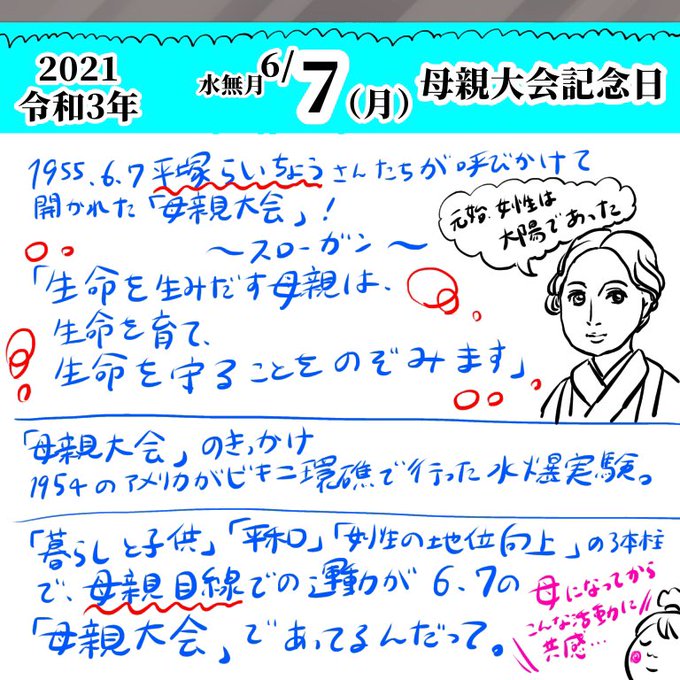 2021
令和3年
水無月6/7(月)
母親大会記念日
1955.6.7 平塚らいちょうさんたちが呼びかけて
開かれた「母親大会」!
元始、女性は
太陽であった
〜スローガン〜
「生命を生みだす母親は、
生命を育て、
生命を守ることをのぞみます」
「母親大会」のきっかけ
1954のアメリカがビキニ環礁で行った水爆実験。
「暮らしと子供」「平和」「女性の地位向上」の3本柱
で、母親目線での運動が6.7の
「母親大会」であってるんだって。
母になってから
こんな活動に
共感…